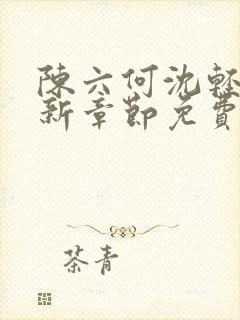 陳六何沈輕
新章節免費
茶青